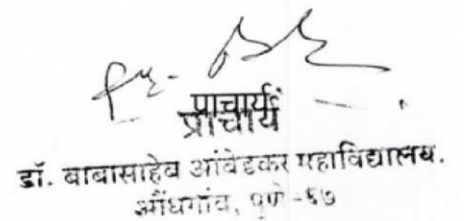 प्राचार्य
डॉ. बाबासाहेब आंबेडकर महाविद्यालय.
औंधगांव, पुणे -६७